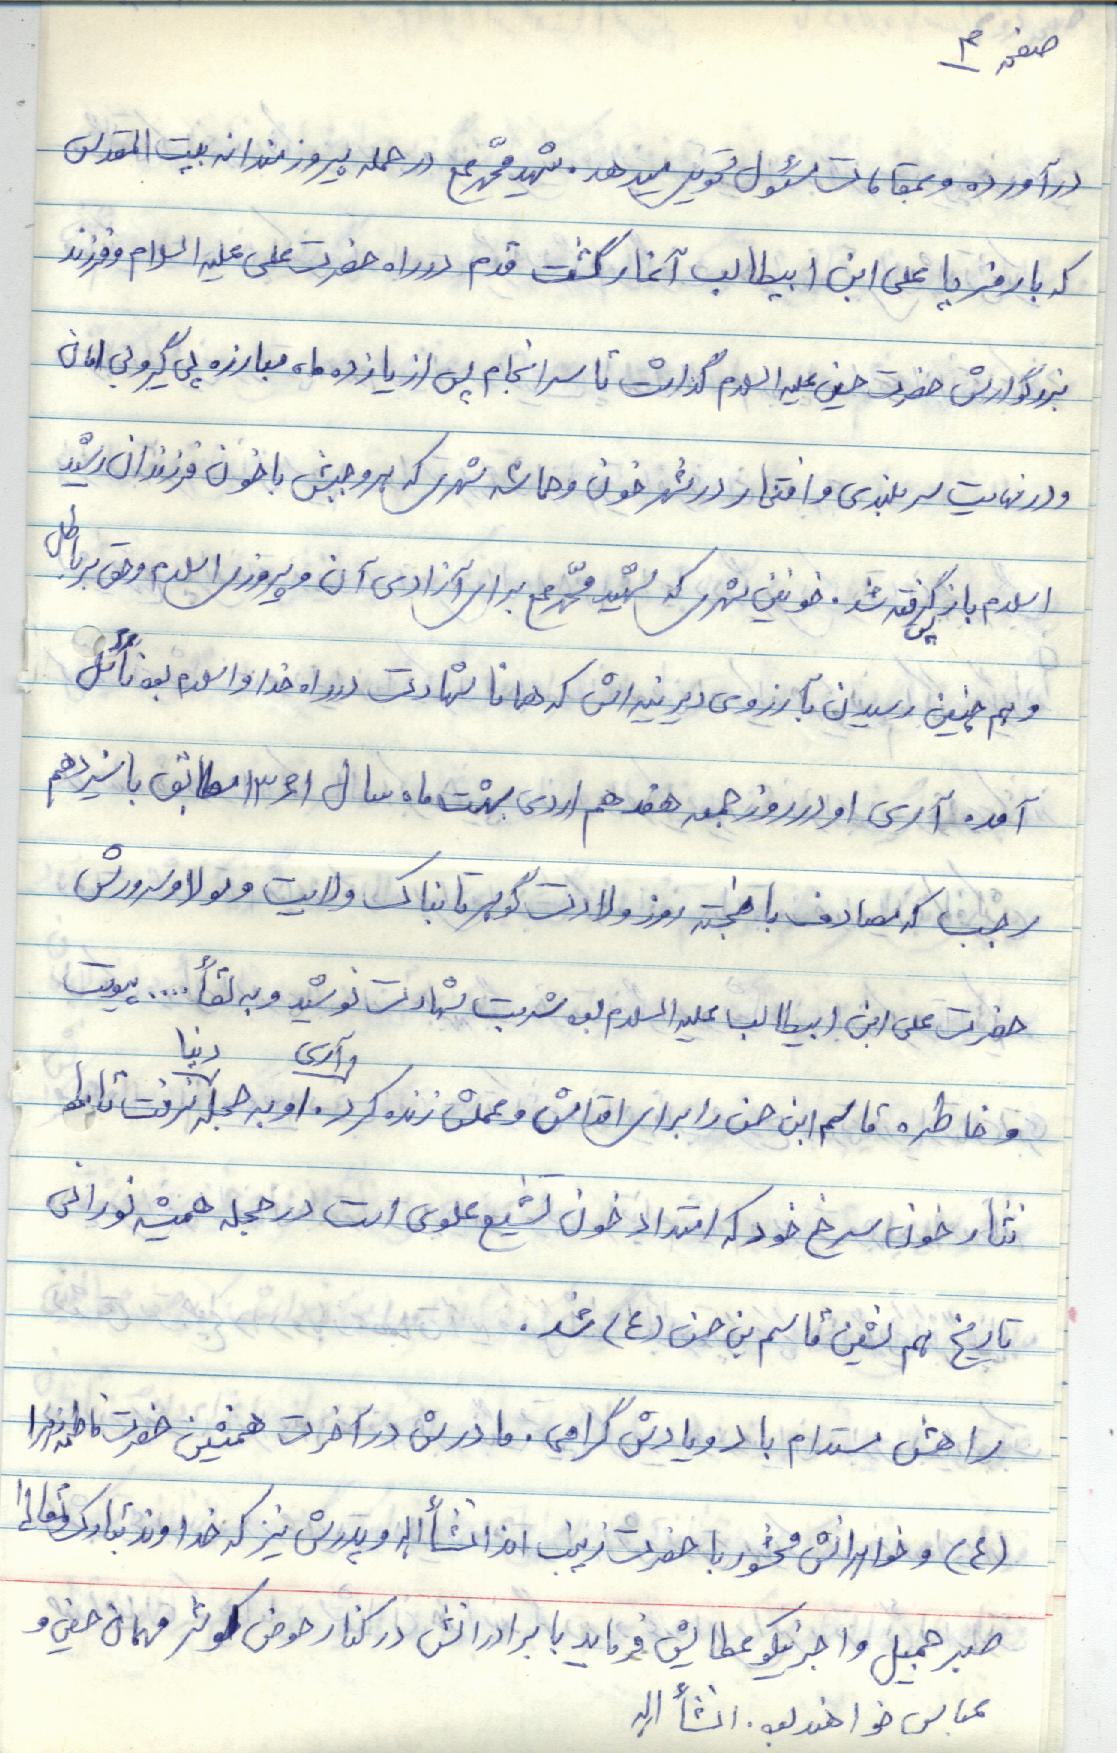 صفحه ۳
درآورده و بمقامات مسئول تحویل میدهد. شهید محمد عم در حمله پیروزمندانه بیت المقدس
که با رمز یا علی ابن ابیطالب آغاز گشت قدم در راه حضرت علی علیه السلام و فرزند
بزرگوارش حضرت حسین علیه السلام گذاشت تا سرانجام پس از یازده ماه مبارزه پی گیر و بی امان
و در نهایت سربلندی و افتخار در شهر خون و حماسه شهری که هر وجبش با خون فرزندان رشید
اسلام باز پس گرفته شد. خونین شهری که شهید محمد عم برای آزادی آن و پیروزی اسلام و حق بر باطل
و هم چنین رسیدن بآرزوی دیرینه اش که همانا شهادت در راه خدا و اسلام بود نائل
آمد. آری او در روز جمعه هفدهم اردی بهشت ماه سال ۱۳۶۱ مطابق با سیزدهم
رجب که مصادف با خجسته روز ولادت گوهر تابناک ولایت و مولا و سرورش
حضرت علی ابن ابیطالب علیه السلام بود شربت شهادت نوشید و به لقأ .... پیوست
و خاطره قاسم ابن حسن را برای اقوامش و عملش زنده کرد. آری او به حجله دنیا نرفت تا با
نثار خون سرخ خود که امتداد خون تشیع علوی است در حجله همیشه نورانی
تاریخ هم نشین قاسم بن حسن (ع) شد.
راهش مستدام باد و یادش گرامی. مادرش در آخرت همنشین حضرت فاطمه زهرا
(ع) و خواهرانش محشور با حضرت زینب انشأ اله و پدرش نیز که خداوند تبارک و تعالی
صبر جمیل و اجر نیکو عطایش فرماید با برادرانش در کنار حوض کوثر مهمان حسین و
عباس خواهند بود. انشأ اله